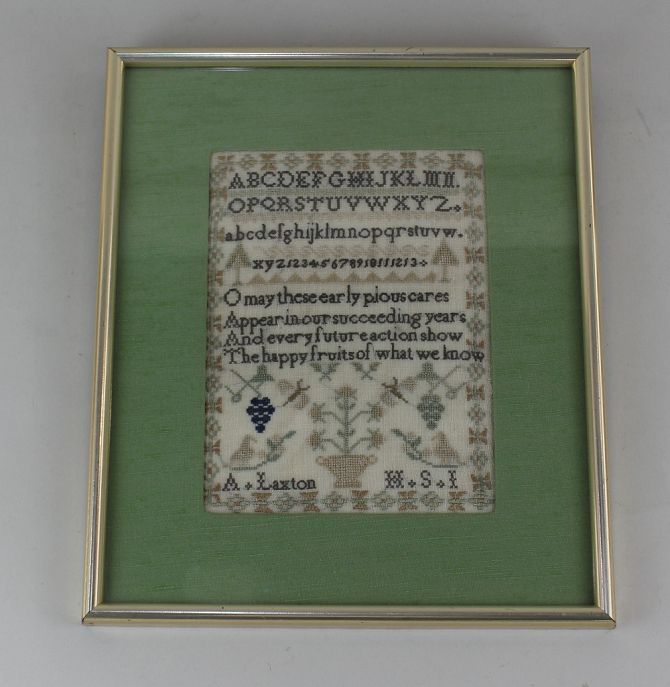 ABCDEFGHIJKLMN.
OPQRSTUVWXYZ.
abcdefghijklmnopqrstuvw.
xyz12345678910111213
O may these early pious cares
Appear in our succeeding years
And every future action show
The happy fruits of what we know
A Laxton H S I